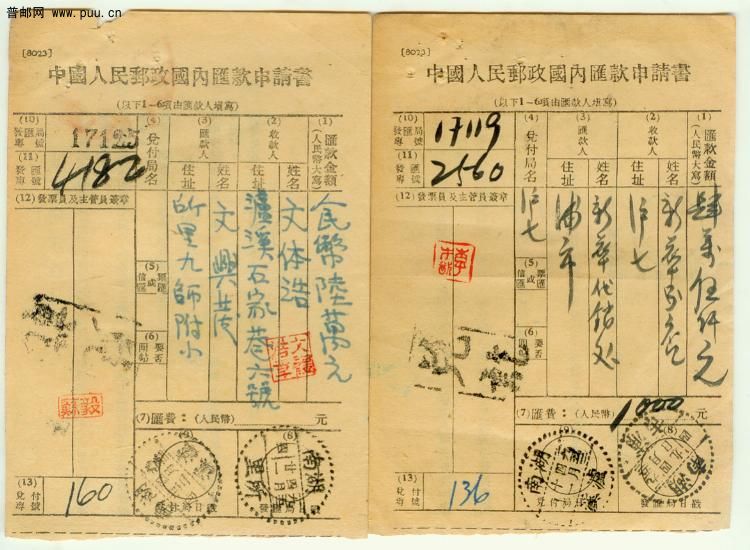 普邮网 www.puu.cn
[8023]
中國人民郵政國內匯款申請書
(以下1－6項由匯款人填寫)
(1) 匯款金額 (人民幣大寫)
人民幣陸萬元
(2) 收款人
姓名
文体浩
住址
瀘溪石家巷六號
(3) 匯款人
姓名
文興茂
住址
所里九師附小
(4) 兌付局名
(5) 信匯或票匯
(6) 要否回帖
(10) 發匯局專號
17125
(11) 發匯專號
4182
(12) 發票員及主管員簽章
(7)匯費：(人民幣) 元
(8)
(9)
(13) 兌付專號
160
[8023]
中國人民郵政國內匯款申請書
(以下1－6項由匯款人填寫)
(1) 匯款金額 (人民幣大寫)
肆萬伍仟元
(2) 收款人
姓名
住址
沪七
(3) 匯款人
姓名
住址
浦市
(4) 兌付局名
沪七
(5) 信匯或票匯
(6) 要否回帖
(10) 發匯局專號
17119
(11) 發匯專號
2560
(12) 發票員及主管員簽章
(7)匯費：(人民幣) 1000 元
(8)
(9)
湖南
(13) 兌付專號
136